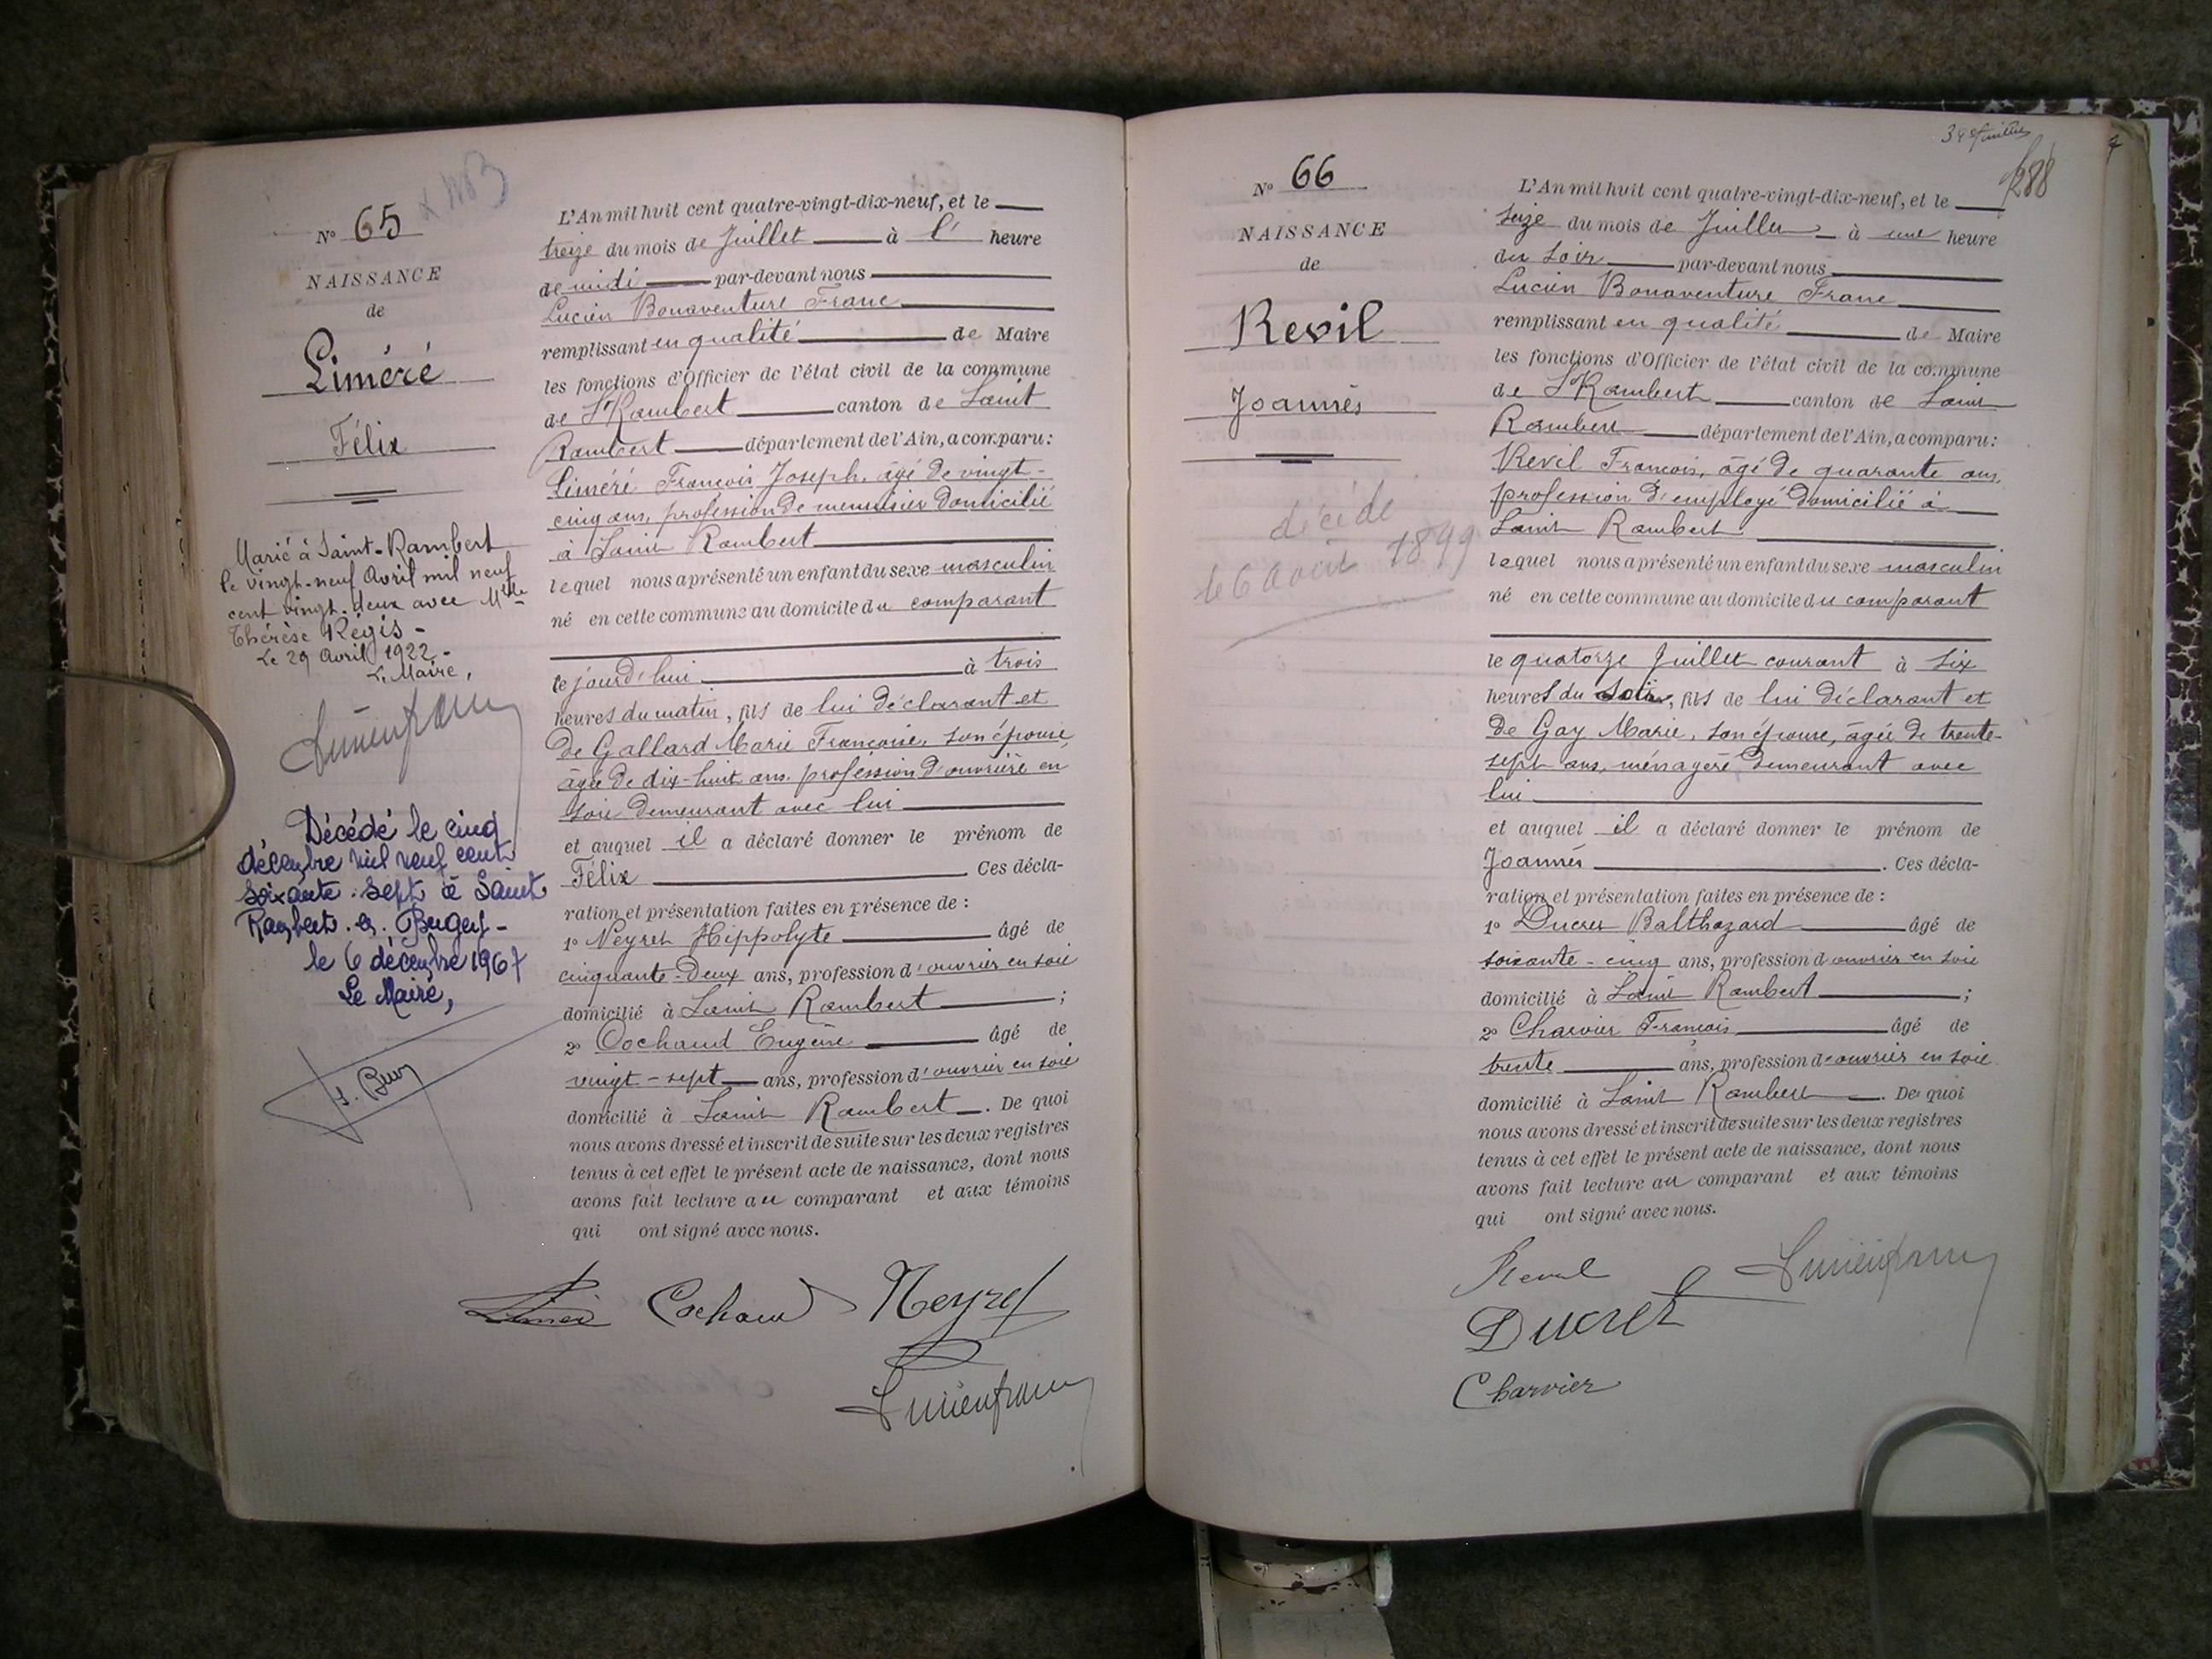 N° 65
NAISSANCE
de
Liméré
Félix
Marié à Saint-Rambert
le vingt-neuf Avril mil neuf
cent vingt-deux avec Mlle
Thérèse Régis -
Le 29 Avril 1922 -
Le Maire,
Décédé le cinq
décembre mil neuf cent
soixante-sept à Saint
Rambert-en-Bugey -
le 6 décembre 1967
Le Maire,
L'An mil huit cent quatre-vingt-dix-neuf, et le
treize du mois de Juillet à l' heure
de midi par-devant nous
Lucien Bonaventure Franc
remplissant en qualité de Maire
les fonctions d'Officier de l'état civil de la commune
de St Rambert canton de Saint
Rambert département de l'Ain, a comparu :
Liméré François Joseph, âgé de vingt-
cinq ans, profession de menuisier domicilié
à Saint Rambert
lequel nous a présenté un enfant du sexe masculin
né en cette commune au domicile du comparant
le jourd'hui à trois
heures du matin, fils de lui déclarant et
de Gallard Marie Françoise, son épouse,
âgée de dix-huit ans, profession d'ouvrière en
soie demeurant avec lui
et auquel il a déclaré donner le prénom de
Félix . Ces décla-
ration et présentation faites en présence de :
1° Neyret Hippolyte âgé de
cinquante-deux ans, profession d'ouvrier en soie
domicilié à Saint Rambert ;
2° Cochaud Eugène âgé de
vingt-sept ans, profession d'ouvrier en soie
domicilié à Saint Rambert . De quoi
nous avons dressé et inscrit de suite sur les deux registres
tenus à cet effet le présent acte de naissance, dont nous
avons fait lecture au comparant et aux témoins
qui ont signé avec nous.
Cochaud Neyret
Lucien franc
288
N° 66
NAISSANCE
de
Revil
Joannès
décédé
le 6 août 1899
L'An mil huit cent quatre-vingt-dix-neuf, et le
seize du mois de Juillet à une heure
du soir par-devant nous
Lucien Bonaventure Franc
remplissant en qualité de Maire
les fonctions d'Officier de l'état civil de la commune
de St Rambert canton de Saint
Rambert département de l'Ain, a comparu :
Revil François, âgé de quarante ans,
profession d'employé domicilié à
Saint Rambert
lequel nous a présenté un enfant du sexe masculin
né en cette commune au domicile du comparant
le quatorze Juillet courant à six
heures du soir, fils de lui déclarant et
de Gay Marie, son épouse, âgée de trente-
sept ans, ménagère demeurant avec
lui
et auquel il a déclaré donner le prénom de
Joannès . Ces décla-
ration et présentation faites en présence de :
1° Ducret Balthazard âgé de
soixante-cinq ans, profession d'ouvrier en soie
domicilié à Saint Rambert ;
2° Charvier François âgé de
trente ans, profession d'ouvrier en soie
domicilié à Saint Rambert . De quoi
nous avons dressé et inscrit de suite sur les deux registres
tenus à cet effet le présent acte de naissance, dont nous
avons fait lecture au comparant et aux témoins
qui ont signé avec nous.
Revil Lucien franc
Ducret
Charvier